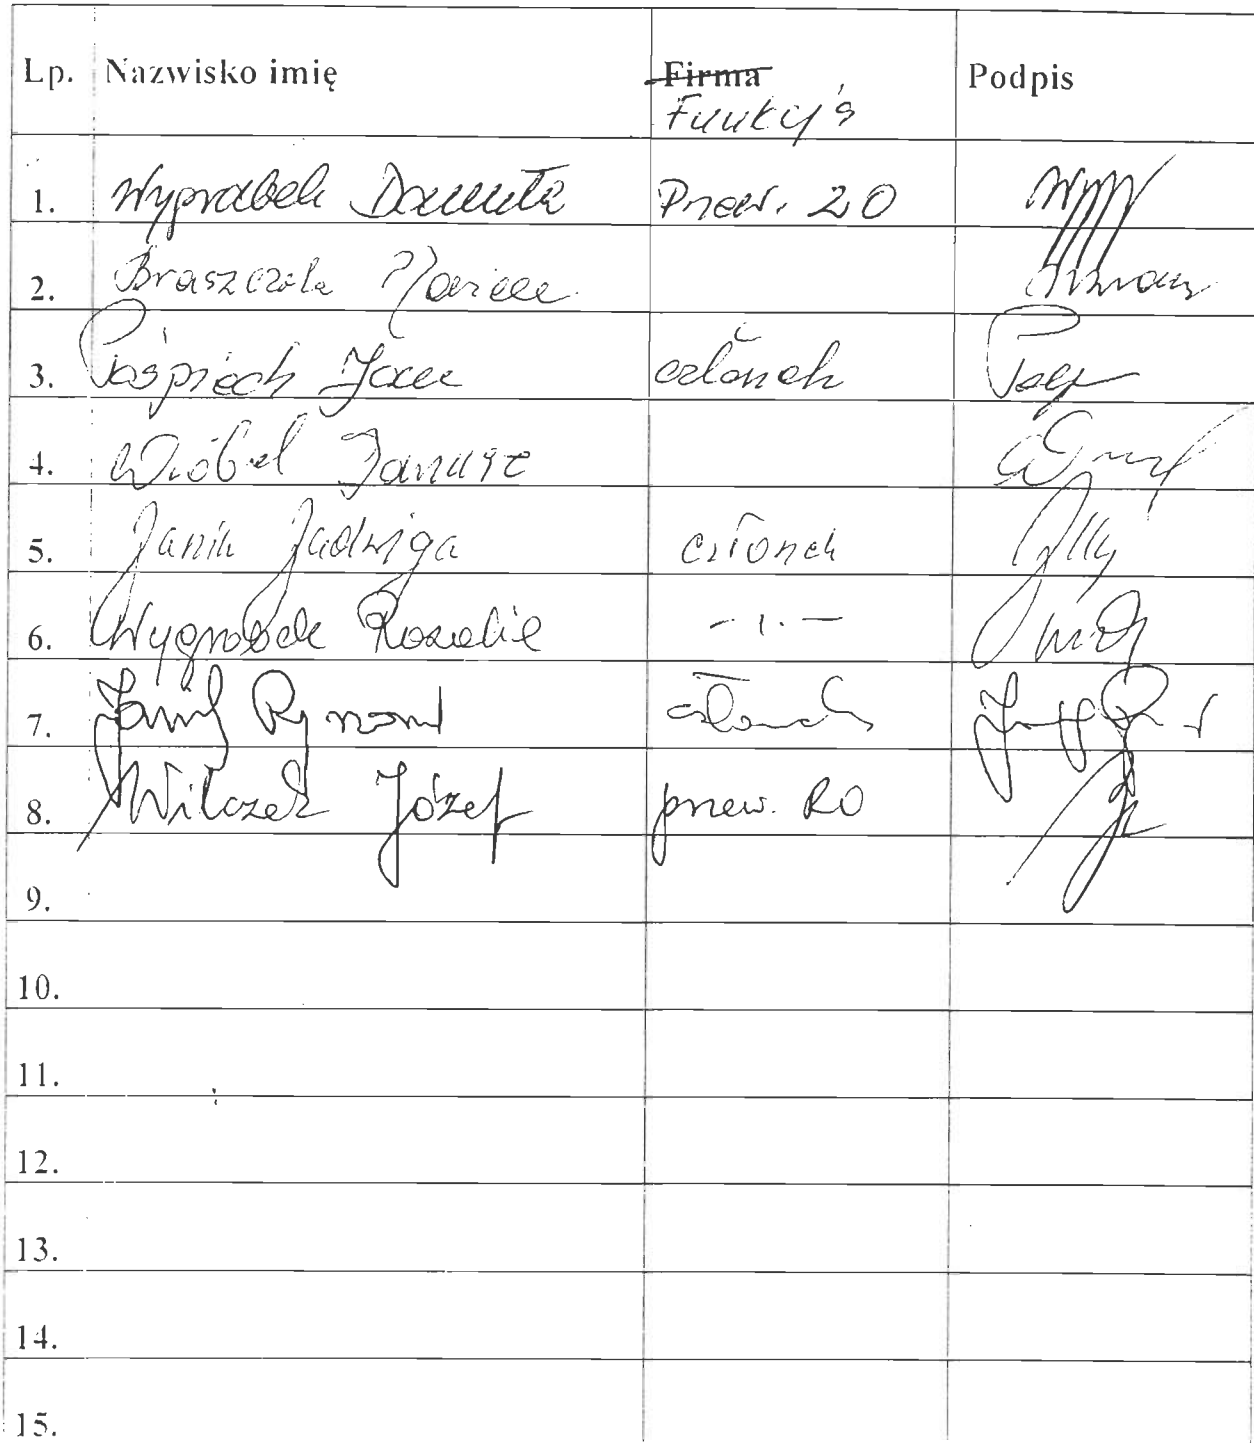 Lp. Nazwisko imię Firma Podpis
Funkcja
1. Wygrabek Danuta Przew. ZO
2. Braszczok
3. Pośpiech Jan członek
4. Wróbel Janusz
5. Janik Jadwiga członek
6. Wygrabek Rozalia -ı.-
7. Janik Rajmund członek
8. Wilczek Józef przew. RO
9.
10.
11.
12.
13.
14.
15.